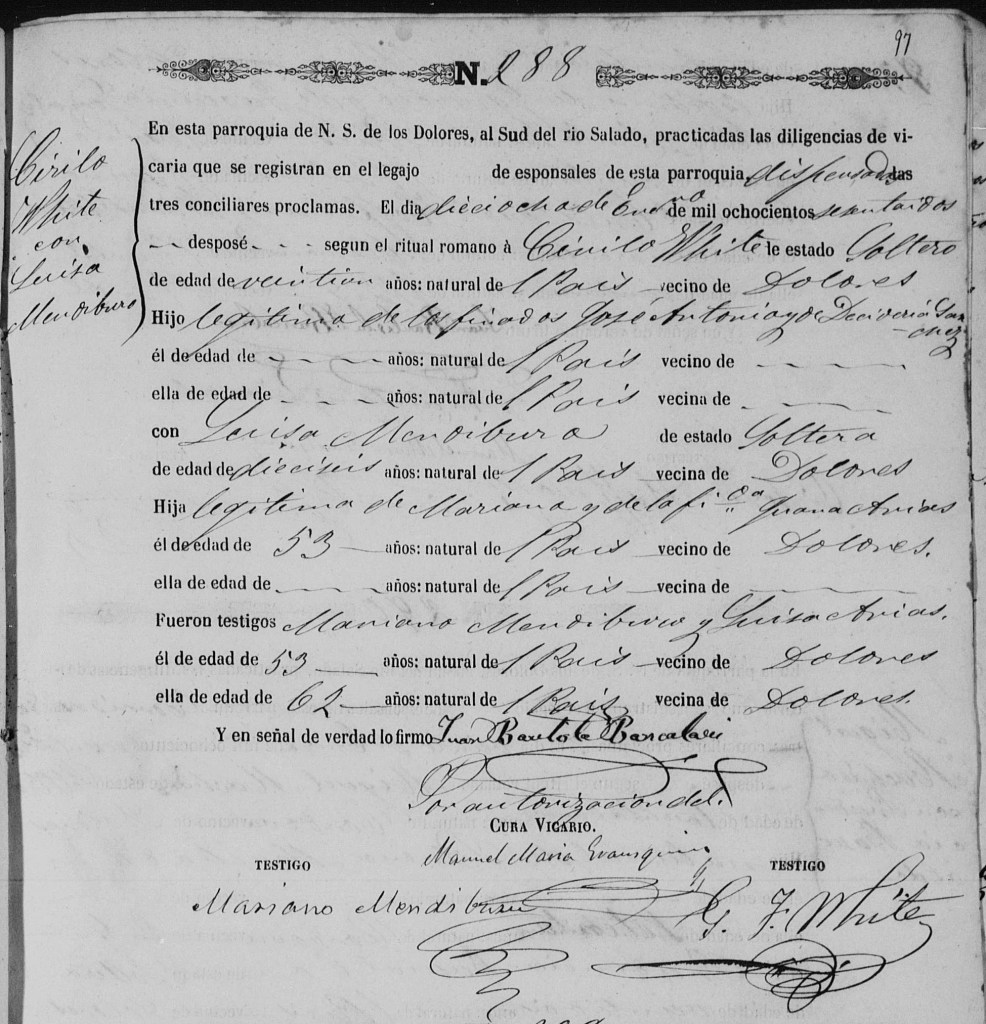 97
N. 288
Cirilo
White
con
Luisa
Mendiburo
En esta parroquia de N. S. de los Dolores, al Sud del rio Salado, practicadas las diligencias de vi-
caria que se registran en el legajo de esponsales de esta parroquia, dispensadas las
tres conciliares proclamas. El dia dieciocho de Enero de mil ochocientos setentaidos
desposé segun el ritual romano à Cirilo White de estado Soltero
de edad de veintiun años: natural de l Pais vecino de Dolores
Hijo legitimo de los finados José Antonio y de Decideria San-
chez
él de edad de años: natural de l Pais vecino de
ella de edad de años: natural de l Pais vecina de
con Luisa Mendiburo de estado Soltera
de edad de dieciseis años: natural de l Pais vecina de Dolores
Hija legitima de Mariano y de la fi.da Juana Arias
él de edad de 53 años: natural de l Pais vecino de Dolores.
ella de edad de años: natural de l Pais vecina de
Fueron testigos Mariano Mendiburo y Luisa Arias.
él de edad de 53 años: natural de l Pais vecino de Dolores
ella de edad de 62 años: natural de l Pais vecina de Dolores.
Y en señal de verdad lo firmo Juan Bautista
Por autorizacion del.
CURA VICARIO.
Manuel Maria
TESTIGO TESTIGO
Mariano Mendiburu G. F. White